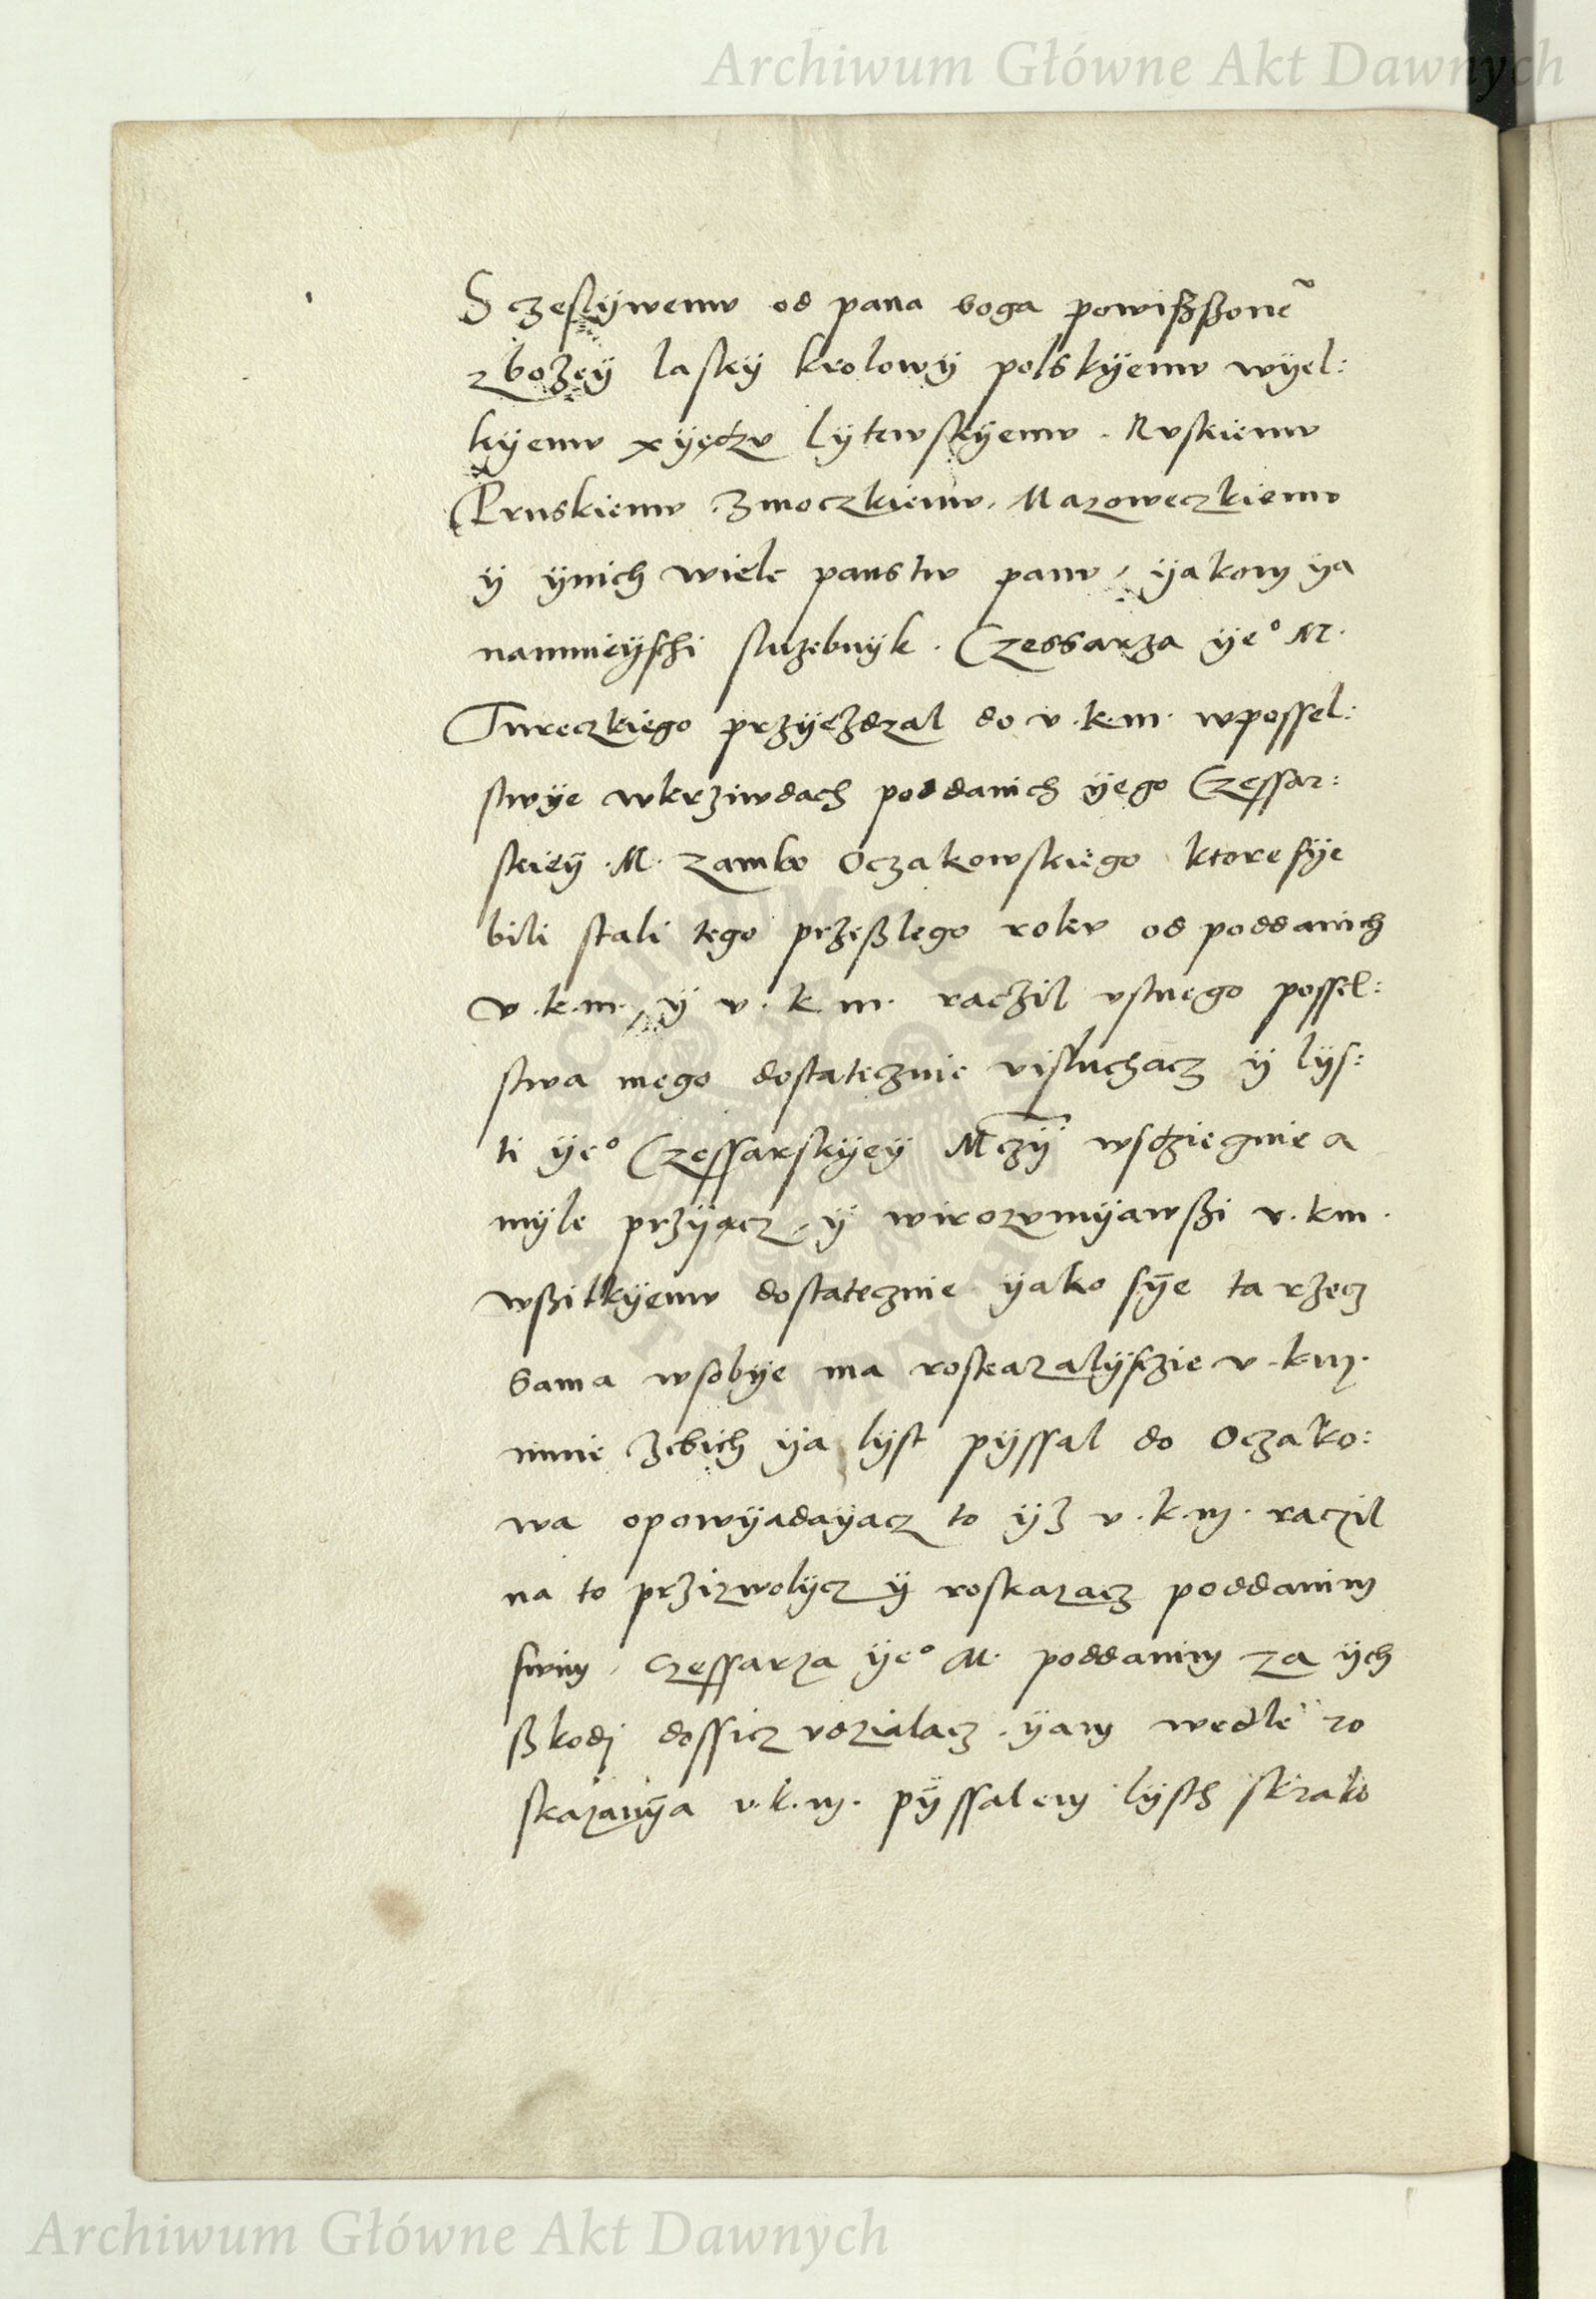 Archiwum Główne Akt Dawnych
Sczeslÿwemv od pana boga powißßone͂
z bożeÿ laskÿ krolowÿ polskÿemv wÿel:
kÿemv xÿędzv lÿtewskÿemv . Rvskiemv
Prvskiemv . Zmoczkiemv . Mazoweczkiemv
ÿ ÿnich wiele panstw panv / ÿakom ÿa
namnieÿschi sluzebnÿk . Czessarza ÿe° M.
Tureczkiego przÿeżdzal do v.k.m. wpossel:
stwÿe wkrziwdach poddanich ÿego Czessar:
skieÿ .M. zamkv Oczakowskiego ktore sÿe
bili stali tego przeßlego rokv od poddanich
v.k.m. / ÿ v.k.m. raczil vstnego possel:
stwa mego dostatecznie visluchacz ÿ lÿs:
ti ÿe° Czessarskÿeÿ Mczÿ wsdziegnie a
mÿle przÿącz / ÿ wirozvmÿawßi v.km.
wßitkÿemv dostatecznie ÿako sÿe ta rzecz
sama wsobÿe ma roskazalÿsczie v.km.
mnie żebich ÿa lÿst pÿssal do Oczako:
wa opowÿadaÿacz to ÿż v.k.m. raczil
na to przizwolÿcz ÿ roskazacz poddanim
swim / czessarza ÿe° M. poddanim za ÿch
ßkodi dossicz vdzialacz . ÿam wedle ro
skazanÿa v.k.m. pÿssalem lÿsth skrako
Archiwum Główne Akt Dawnych